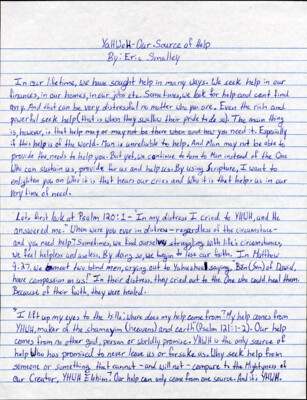 YaHWeH - Our Source of Help
By: Eric Smalley
In our lifetime, we have sought help in many ways. We seek help in our
finances, in our homes, in our jobs etc. Sometimes, we look for help and cant find
any. And that can be very distressful no matter who you are. Even the rich and
powerful seek help (that is when they swallow their pride to do so). The main thing
is, however, is that help may or may not be there when and how you need it. Especially
if this help is of the world. Man is unreliable to help. And Man may not be able to
provide the needs to help you. But yet, we continue to turn to Man instead of the One
Who can sustain us, provide for us and help us. By using Scripture, I want to
enlighten you on Who it is that hears our cries and Who it is that helps us in our
very time of need.
Lets first look at Psalm 120:1 - In my distress I cried to YHUH, and He
answered me." When were you ever in distress - regardless of the circumstance -
and you need help? Sometimes, we find ourselves struggling with life's circumstances,
we feel helpless and useless. By doing so, we begin to lose our faith. In Matthew
9:27, we meet two blind men, crying out to Yahushua saying, Ben (Son) of Dawid,
have compassion on us!" In their distress, they cried out to the One who could heal them.
Because of their faith, they were healed.
"I lift up my eyes to the hills; where does my help come from? My help comes from
YHUH, maker of the shamayim (heavens) and earth (Psalm 121:1-2). Our help
comes from no other god, person or worldly promise. YHUH is the only source of
help Who has promised to never leave us or forsake us. Why seek help from
someone or something that cannot - and will not - compare to the Mightyness of
our Creator, YHUH Elohim? Our help can only come from one source. And it's YHUH.